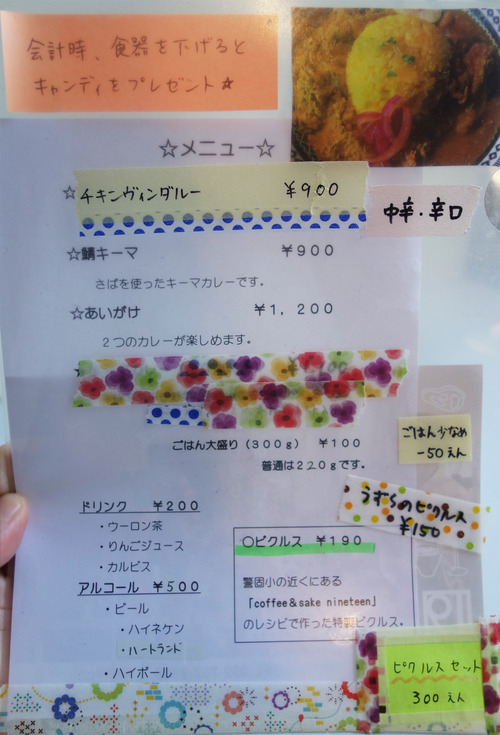 会計時、食器を下げると
キャンディをプレゼント☆
☆メニュー☆
☆チキンヴィンダルー ￥900
中辛・辛口
☆鯖キーマ ￥900
さばを使ったキーマカレーです。
☆あいがけ ￥1,200
2つのカレーが楽しめます。
ごはん大盛り(300g) ￥100
普通は220gです。
ごはん少なめ
-50えん
うずらのピクルス
￥150
ドリンク ￥200
・ウーロン茶
・りんごジュース
・カルピス
アルコール ￥500
・ビール
・ハイネケン
・ハートランド
・ハイボール
〇ピクルス ￥190
警固小の近くにある
「coffee&sake nineteen」
のレシピで作った特製ピクルス。
ピクルスセット
300えん